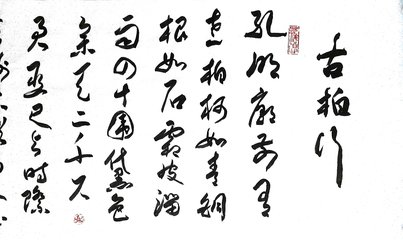 古柏行
孔明廟前有
老柏柯如青銅
根如石霜皮溜
雨四十圍黛色
參天二千尺
君臣已与時際